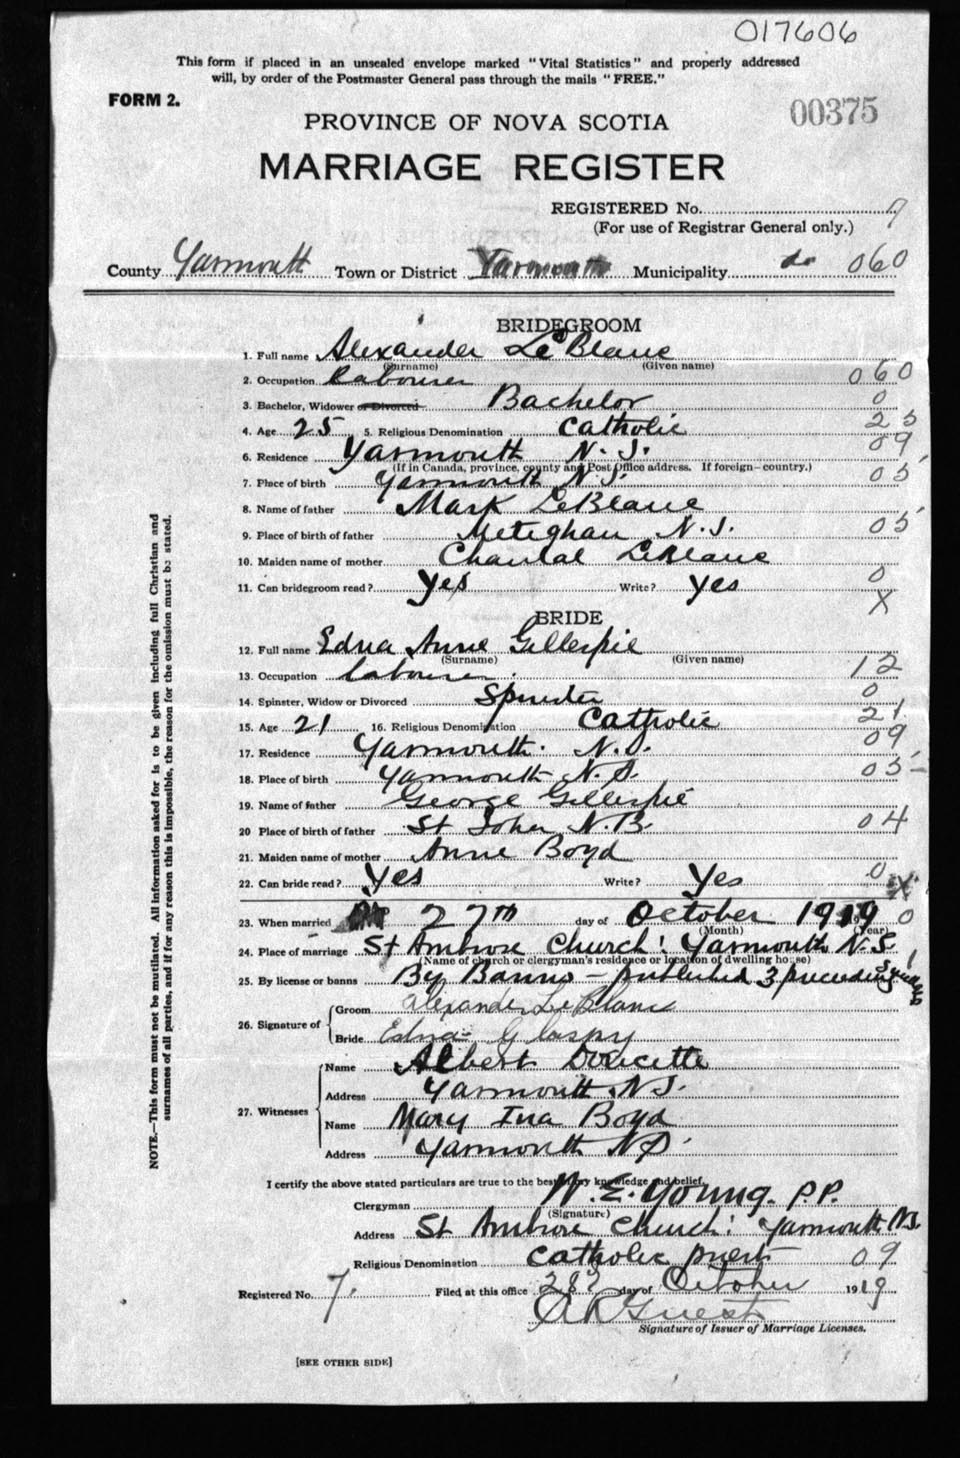 017606
This form if placed in an unsealed envelope marked "Vital Statistics" and properly addressed
will, by order of the Postmaster General pass through the mails "FREE."
FORM 2.
00375
PROVINCE OF NOVA SCOTIA
MARRIAGE REGISTER
REGISTERED No. 7
(For use of Registrar General only.)
County Yarmouth Town or District Yarmouth Municipality do 060
BRIDEGROOM
1. Full name Alexander LeBlanc
(Surname) (Given name)
2. Occupation Labourer 060
3. Bachelor, Widower or Divorced Bachelor 0
4. Age 25 5. Religious Denomination Catholic 25
6. Residence Yarmouth N.S. 09
(If in Canada, province, county and Post Office address. If foreign—country.)
7. Place of birth Yarmouth N.S. 05
8. Name of father Mark LeBlanc
9. Place of birth of father Meteghan N.S. 05
10. Maiden name of mother Chantal LeBlanc
11. Can bridegroom read? Yes Write? Yes 0
X
BRIDE
12. Full name Edna Anne Gillespie
(Surname) (Given name)
13. Occupation Labourer 12
14. Spinster, Widow or Divorced Spinster 0
15. Age 21 16. Religious Denomination Catholic 21
17. Residence Yarmouth. N.S. 09
18. Place of birth Yarmouth N.S. 05
19. Name of father George Gillespie
20 Place of birth of father St John N.B. 04
21. Maiden name of mother Annie Boyd
22. Can bride read? Yes Write? Yes 0 X
23. When married 27TH day of October 1919 0
(Month) (Year)
24. Place of marriage St Ambrose Church: Yarmouth N.S.
(Name of church or clergyman's residence or location of dwelling house)
25. By license or banns By Banns – published 3 preceding Sundays
26. Signature of
Groom Alexander LeBlanc
Bride Edna Glaspy
27. Witnesses
Name Albert Doucette
Address Yarmouth N.S.
Name Mary Ina Boyd
Address Yarmouth N.S.
I certify the above stated particulars are true to the best of my knowledge and belief.
Clergyman W. E. Young. P.P.
(Signature)
Address St Ambrose Church: Yarmouth N.S.
Religious Denomination Catholic priest 09
Registered No. 7. Filed at this office 28 day of October 1919
A R Guest
Signature of Issuer of Marriage Licenses.
[SEE OTHER SIDE]
NOTE.—This form must not be mutilated. All information asked for is to be given including full Christian and
surnames of all parties, and if for any reason this is impossible, the reason for the omission must be stated.